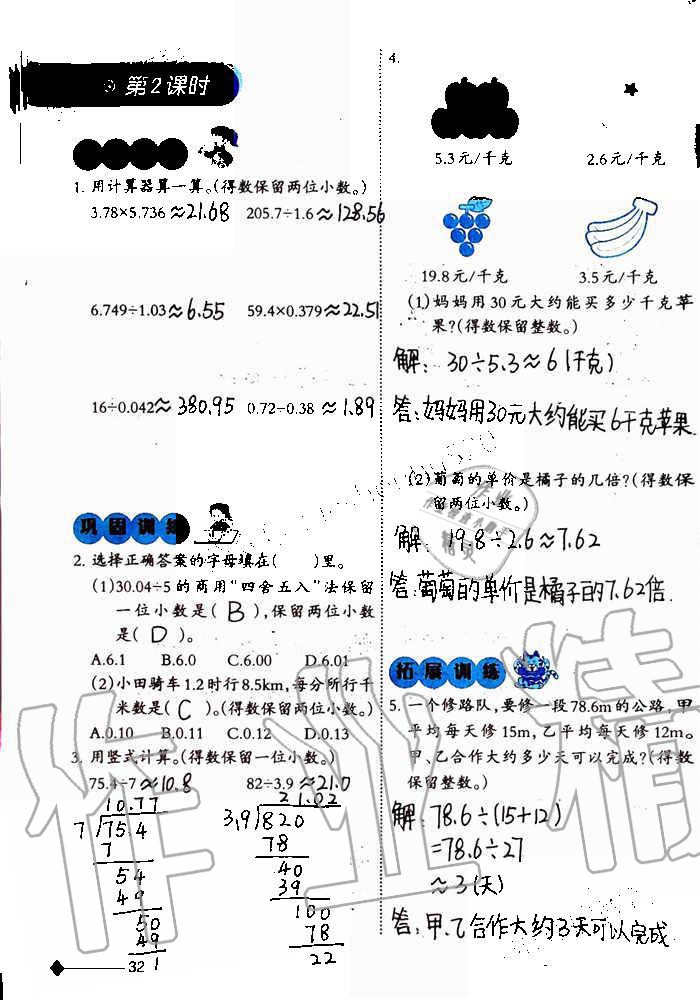 第2课时
1. 用计算器算一算。(得数保留两位小数。)
3.78×5.736≈21.68 205.7÷1.6≈128.56
6.749÷1.03≈6.55 59.4×0.379≈22.51
16÷0.042≈380.95 0.72÷0.38≈1.89
巩固训练
2. 选择正确答案的字母填在( )里。
(1)30.04÷5的商用“四舍五入”法保留
一位小数是( B ),保留两位小数
是( D )。
A.6.1 B.6.0 C.6.00 D.6.01
(2)小田骑车1.2时行8.5km,每分所行千
米数是( C )。(得数保留两位小数。)
A.0.10 B.0.11 C.0.12 D.0.13
3. 用竖式计算。(得数保留一位小数。)
75.4÷7≈10.8 82÷3.9≈21.0
10.77
7 75.4
7
54
49
50
49
1
21.02
3.9 820
78
40
39
100
78
22
32
4.
5.3元/千克 2.6元/千克
19.8元/千克 3.5元/千克
(1)妈妈用30元大约能买多少千克苹
果?(得数保留整数。)
解: 30÷5.3≈6(千克)
答:妈妈用30元大约能买6千克苹果.
(2)葡萄的单价是橘子的几倍?(得数保
留两位小数。)
解: 19.8÷2.6≈7.62
答:葡萄的单价是橘子的7.62倍.
拓展训练
5. 一个修路队,要修一段78.6m的公路,甲
平均每天修15m,乙平均每天修12m。
甲、乙合作大约多少天可以完成?(得数
保留整数。)
解: 78.6÷(15+12)
=78.6÷27
≈3(天)
答:甲、乙合作大约3天可以完成
作业精